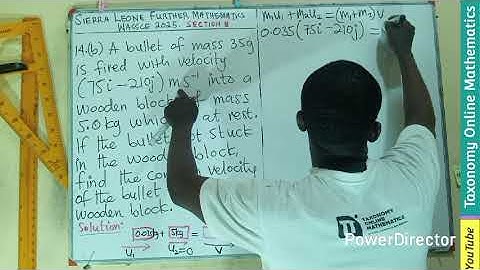 SIERRA LEONE FURTHER MATHEMATICS
WASSCE 2025. SECTION B
14.(b) A bullet of mass 35g
is fired with velocity
(75i − 210j) ms⁻¹ into a
wooden block of mass
5.0kg which at rest.
If the bullet got stuck
in the wooden block,
find the velocity
of the bullet
wooden block.
Solution:
5kg
U₁ U₂=0 V
m₁u₁ + m₂u₂ = (m₁+m₂)v
0.035(75i − 210j) =
TAXONOMY
ONLINE
MATHEMATICS
PowerDirector
Taxonomy Online Mathematics
YouTube